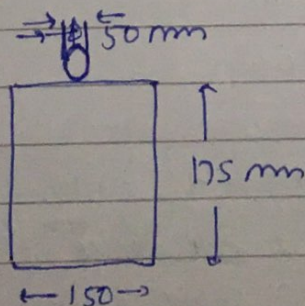 50 mm
175 mm
150